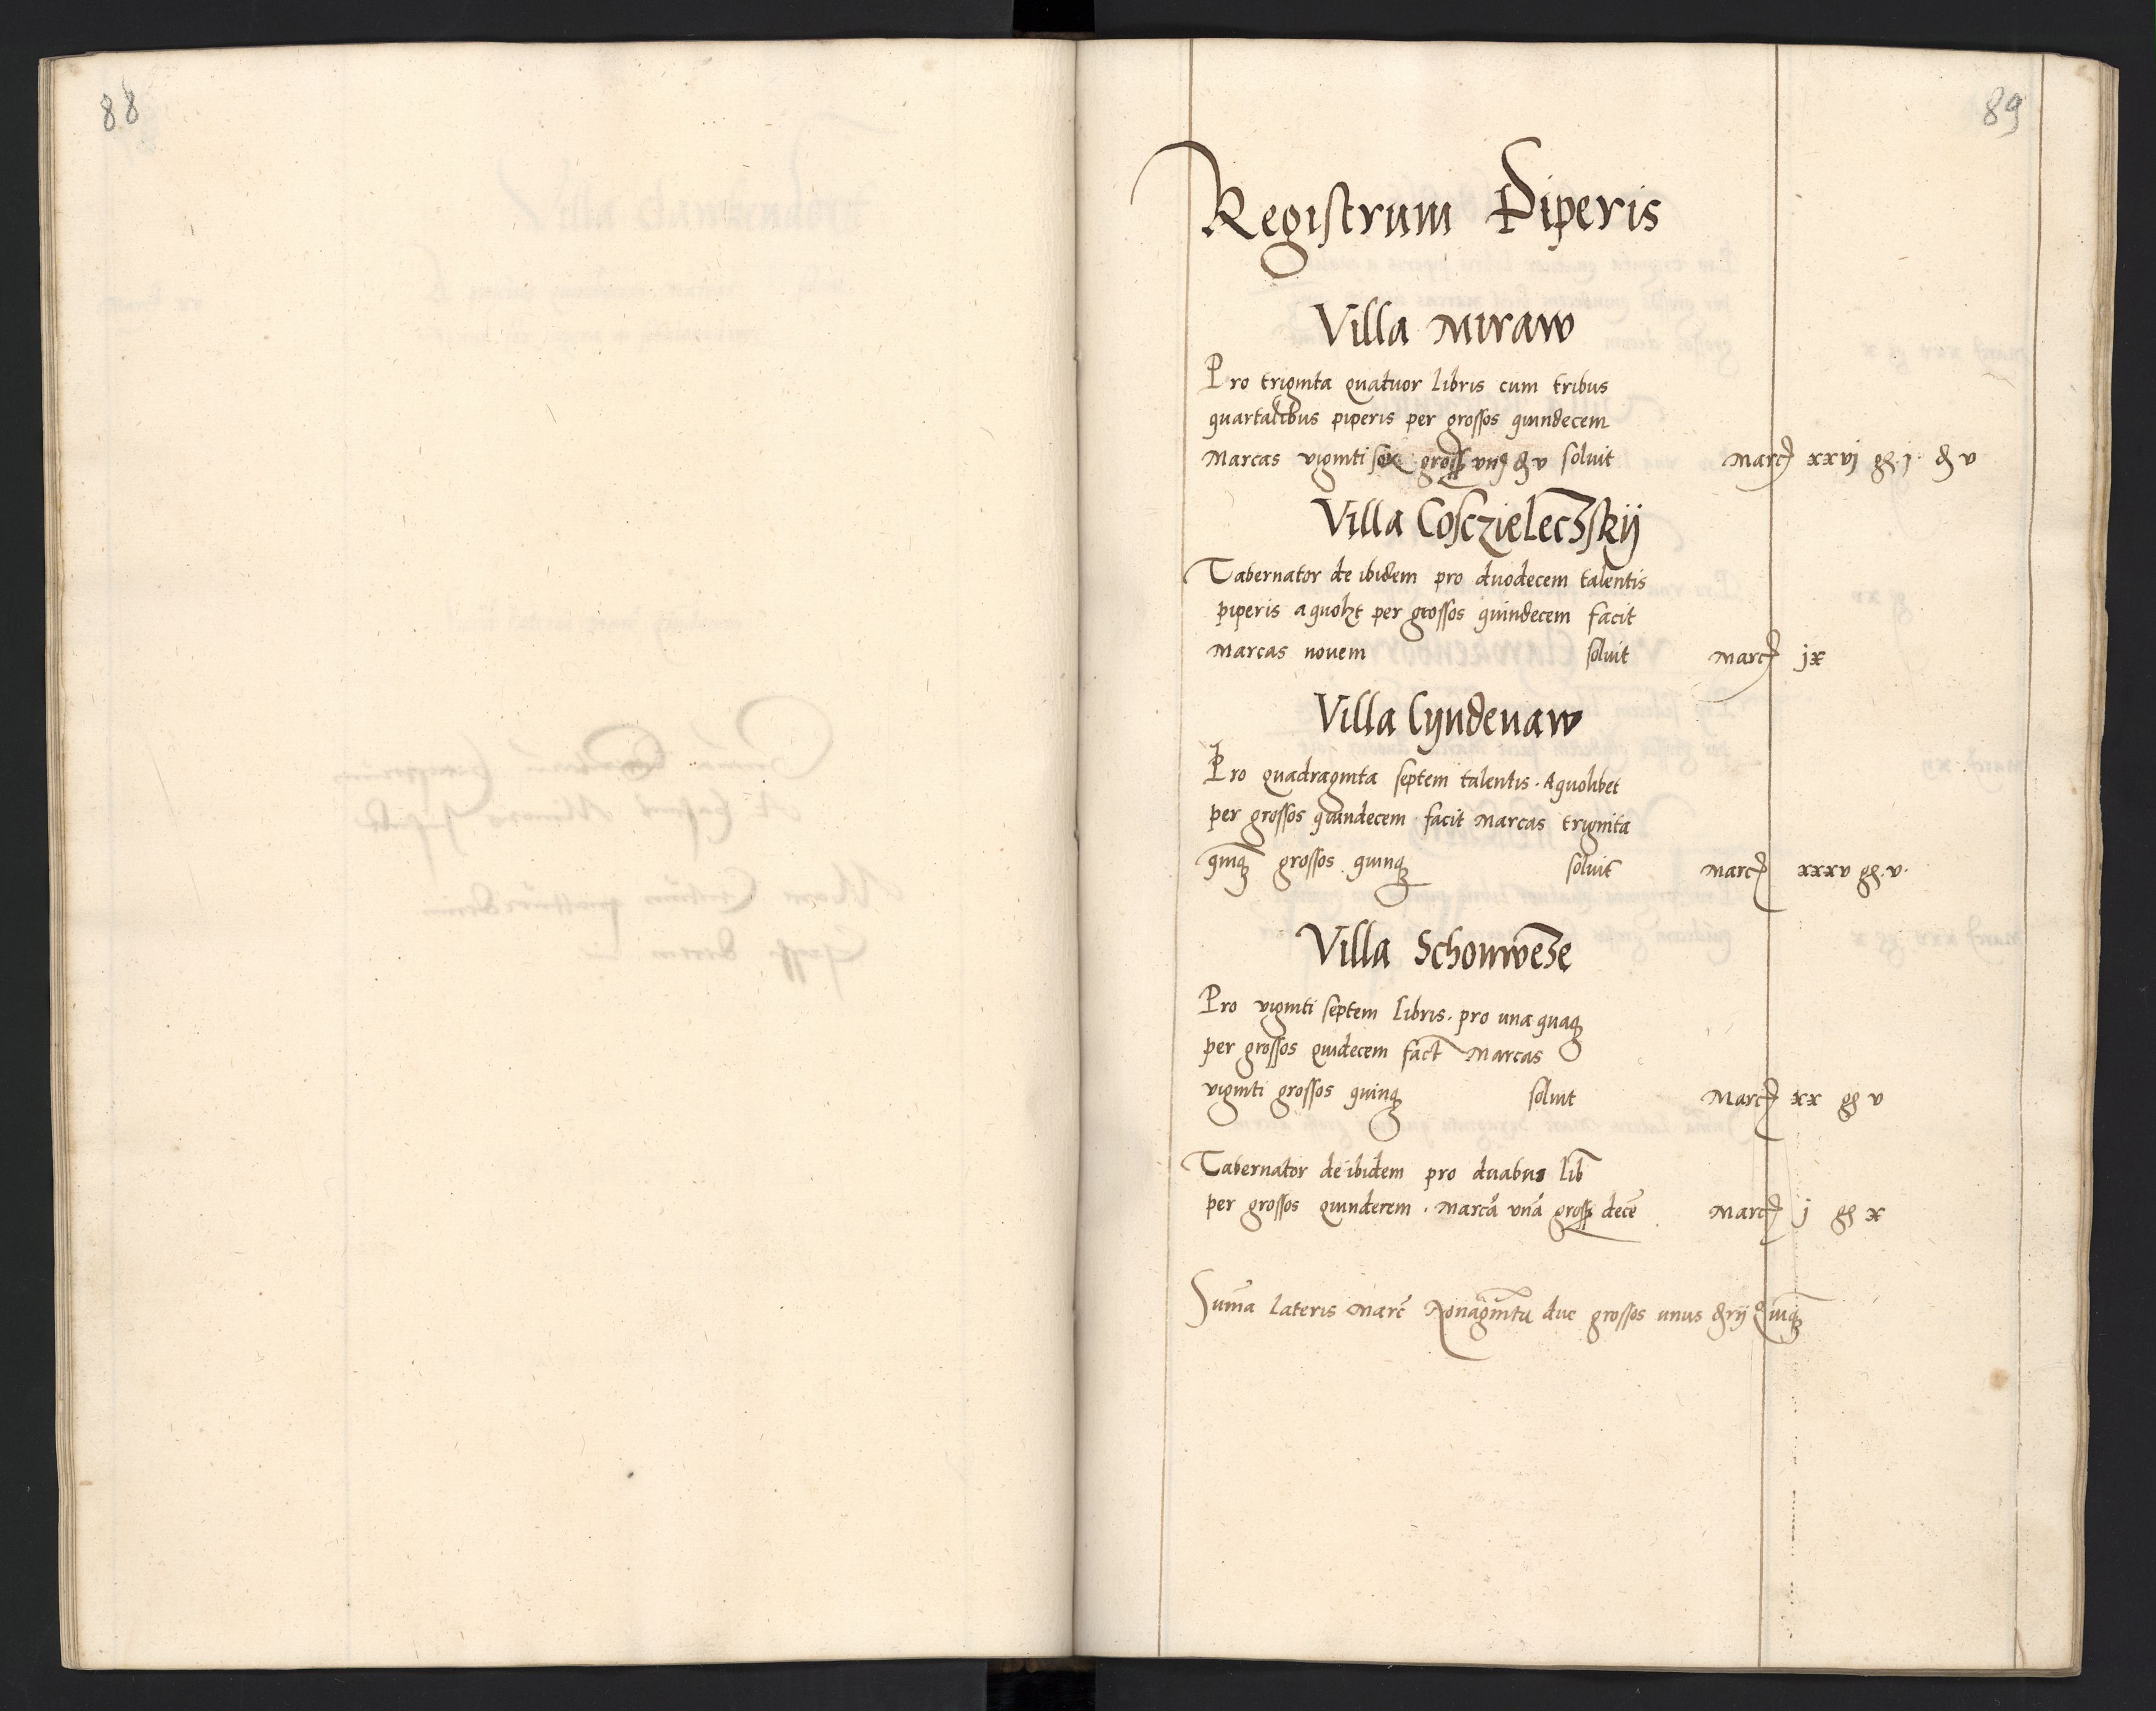 88
89
Registrum Piperis
Villa Miraw
Pro triginta quatuor libris cum tribus
quartalibus piperis per grossos quindecem
Marcas viginti sex gross vnū & v soluit Marc xxvj gs j & v
Villa Cosczieleczskij
Tabernator de ibidem pro duodecem talentis
piperis a quolzt per grossos quindecem facit
Marcas novem soluit Marc jx
Villa Lyndenaw
Pro quadraginta septem talentis . A quolibet
per grossos quindecem facit Marcas triginta
quinq grossos quinq soluit Marc xxxv gs. v.
Villa Schonweze
Pro viginti septem libris . pro una quaq
per grossos quidecem fact Marcas
viginti grossos quinq soluit Marc xx gs v
Tabernator de ibidem pro duabus lib
per grossos quindecem . Marcā vnā gross decē Marc j gs x
Suma lateris Marc Nonaginta due grossos unus quinq